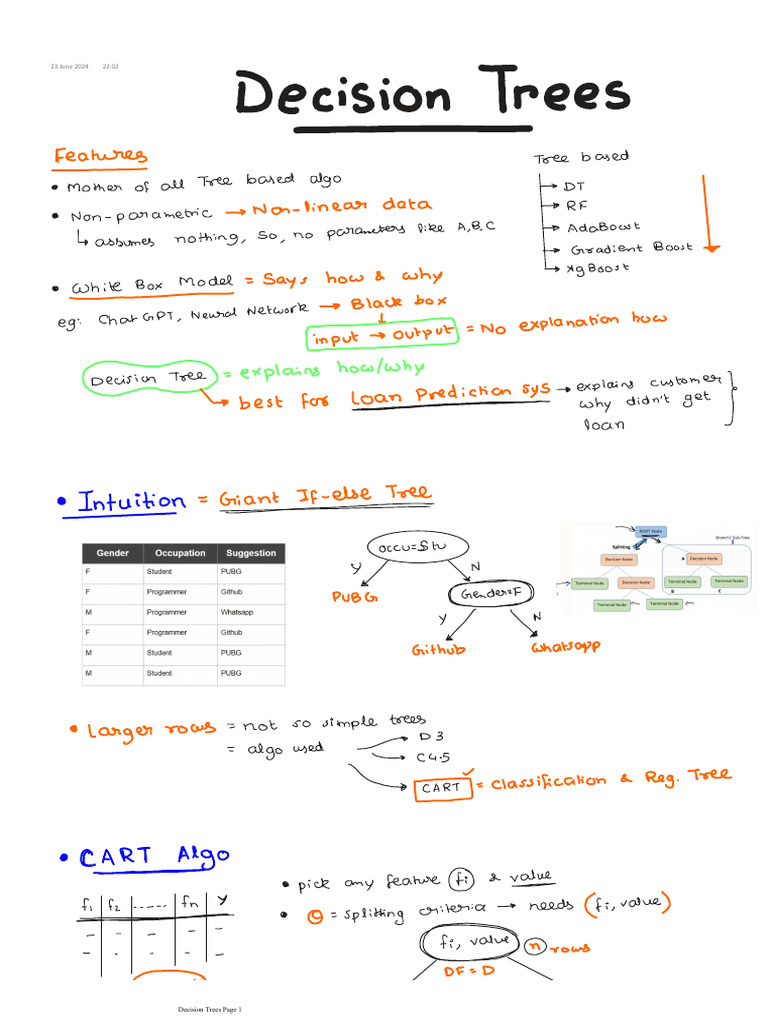 23 June 2024 22:02
Decision Trees
Features
• Mother of all Tree based algo
• Non-parametric → Non-linear data
↳ assumes nothing, So, no parameters like A,B,C
Tree based
→ DT
→ RF
→ AdaBoost
→ Gradient Boost
→ XgBoost
• White Box Model = Says how & why
eg: Chat GPT, Neural Network → Black box
input → output = No explanation how
Decision Tree = explains how/why
↳ best for Loan Prediction sys → explains customer
why didn't get
loan
• Intuition = Giant If-else Tree
Gender Occupation Suggestion
F Student PUBG
F Programmer Github
M Programmer Whatsapp
F Programmer Github
M Student PUBG
M Student PUBG
occu=Stu
Y N
PUBG
Gender=F
Y N
Github Whatsapp
ROOT Node
Splitting
Branch/ Sub-Tree
Decision Node
A Decision Node
Terminal Node
Decision Node
Terminal Node
Terminal Node
B C
Terminal Node
Terminal Node
• Larger rows = not so simple trees
= algo used
D3
C4.5
CART = Classification & Reg. Tree
• CART Algo
f1 f2 ...... fn Y
• pick any feature fi & value
• C = splitting criteria → needs (fi, value)
fi, value n rows
DF = D
Decision Trees Page 1